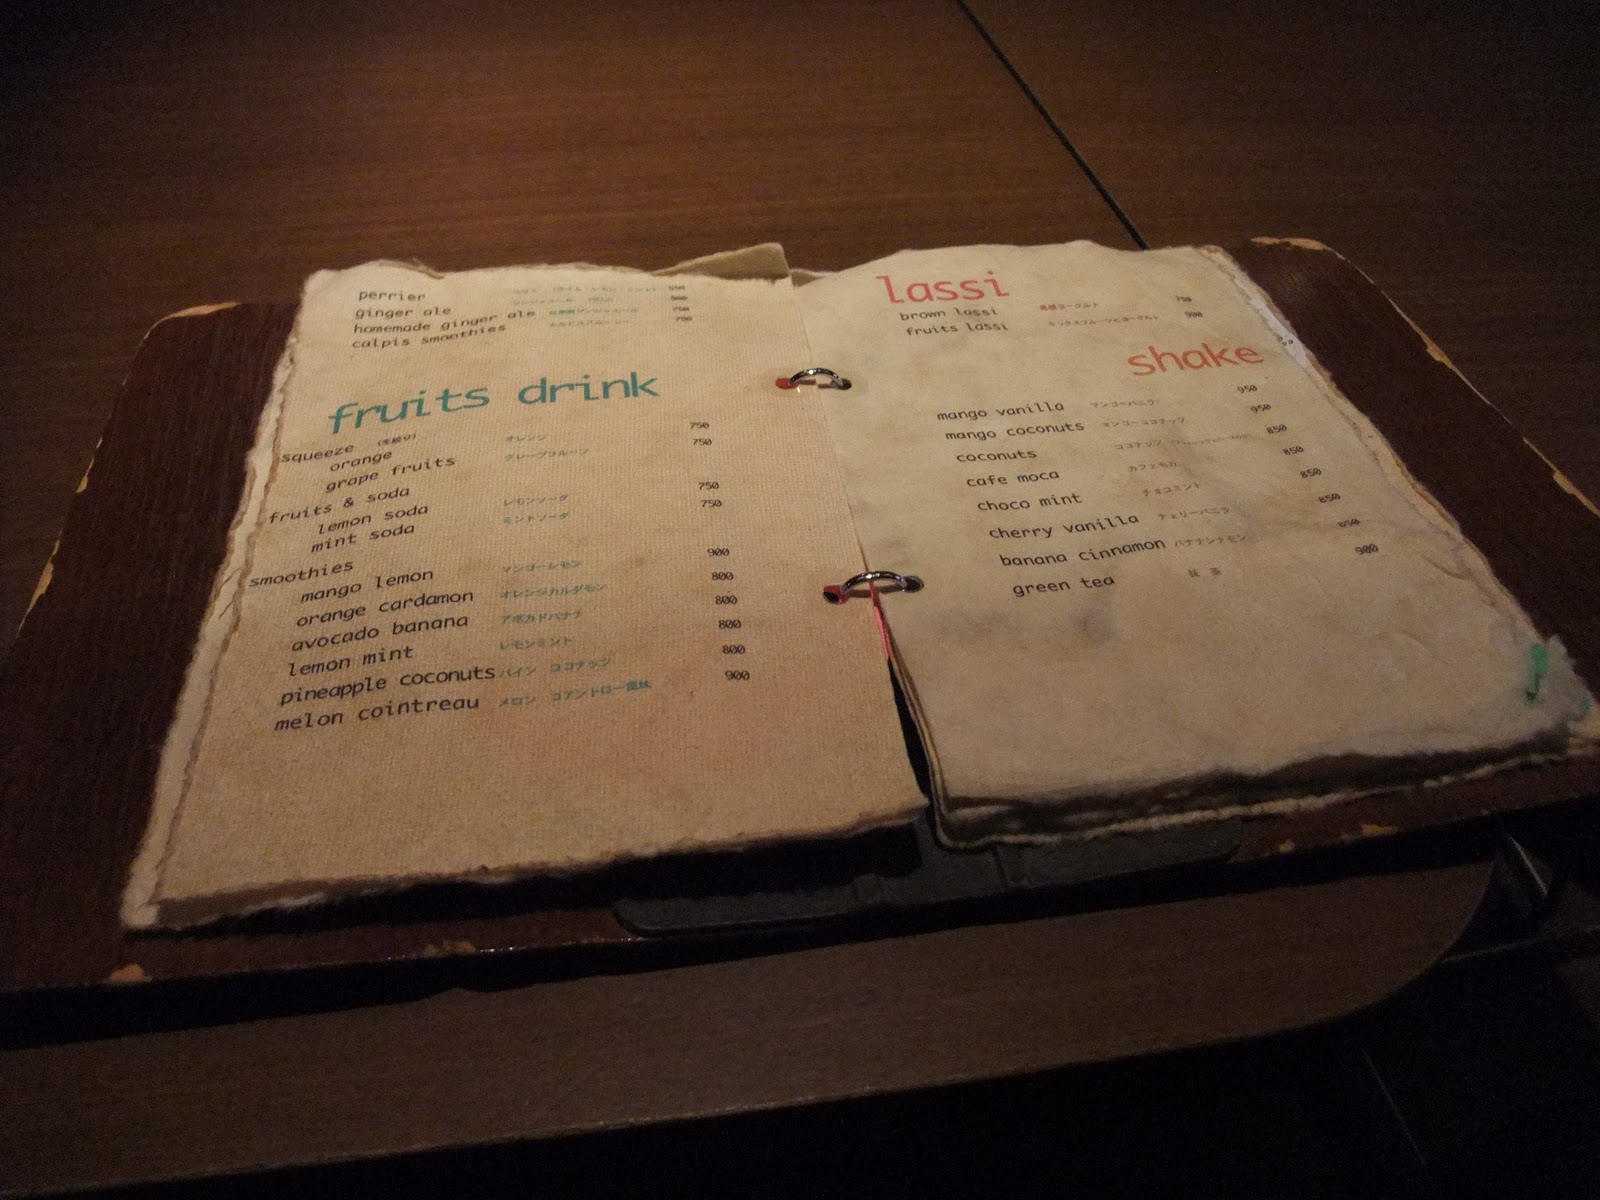 perrier 550
ginger ale 500
homemade ginger ale 自家製ジンジャエール 750
calpis smoothies カルピススムージー 750
fruits drink
squeeze (生絞り)
orange オレンジ 750
grape fruits グレープフルーツ 750
fruits & soda
lemon soda レモンソーダ 750
mint soda ミントソーダ 750
smoothies
mango lemon マンゴーレモン 900
orange cardamon オレンジカルダモン 800
avocado banana アボカドバナナ 800
lemon mint レモンミント 800
pineapple coconuts パイン ココナッツ 800
melon cointreau メロン コアントロー風味 900
lassi
brown lassi 黒糖ヨーグルト 750
fruits lassi ミックスフルーツとヨーグルト 900
shake
mango vanilla マンゴーバニラ 950
mango coconuts マンゴーココナッツ 950
coconuts ココナッツ 850
cafe moca カフェモカ 850
choco mint チョコミント 850
cherry vanilla チェリーバニラ 850
banana cinnamon バナナシナモン 850
green tea 抹茶 900